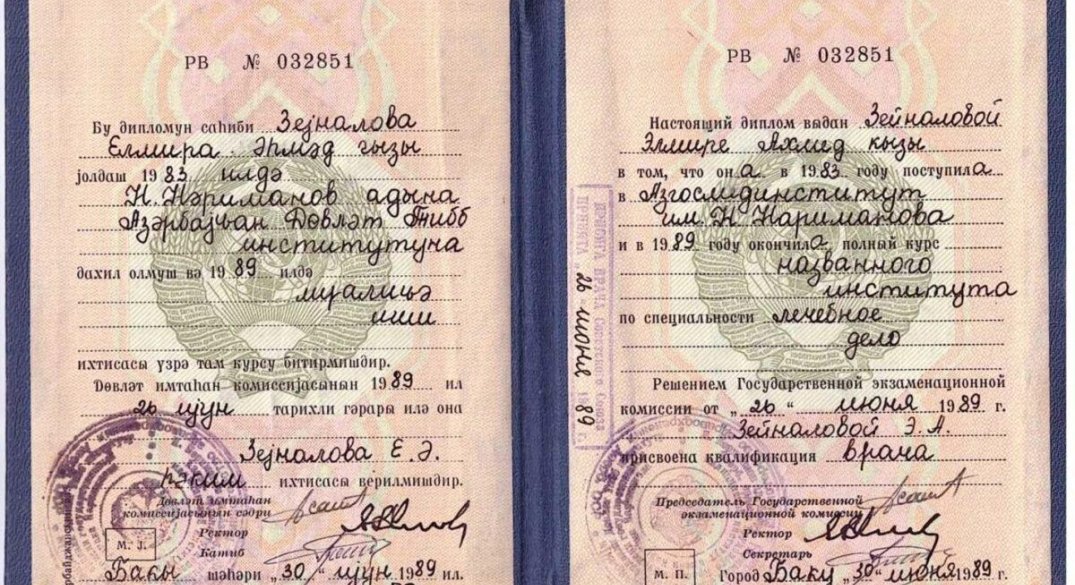 РВ № 032851
Бу дипломун саһиби Зејналова
Елмира Әһмәд гызы
јолдаш 1983 илдә
Н. Нәриманов адына
Азәрбајҹан Дөвләт Тибб
институтуна
дахил олмуш вә 1989 илдә
муалиҹә
иши
ихтисасы үзрә там курсу битирмишдир.
Дөвләт имтаһан комиссијасынын 1989 ил
26 ијун тарихли гәрары илә она
Зејналова Е. Ә.
һәким ихтисасы верилмишдир.
Дөвләт имтаһан
комиссијасынын сәдри
Ректор
М. Ј. Катиб
Бакы шәһәри „30“ ијун 1989 ил.
РВ № 032851
Настоящий диплом выдан Зейналовой
Элмире Ахмед кызы
в том, что она в 1983 году поступила
в Азгосмединститут
им. Н. Нариманова
и в 1989 году окончила полный курс
названного
института
по специальности лечебное
дело
Решением Государственной экзаменационной
комиссии от „26“ июня 1989 г.
Зейналовой Э. А.
присвоена квалификация врача
Председатель Государственной
экзаменационной комиссии
Ректор
Секретарь
М. П. Город Баку „30“ июня 1989 г.
ПРИСЯГА ВРАЧА Советского Союза
ПРИНЯТА „26“ июня 1989